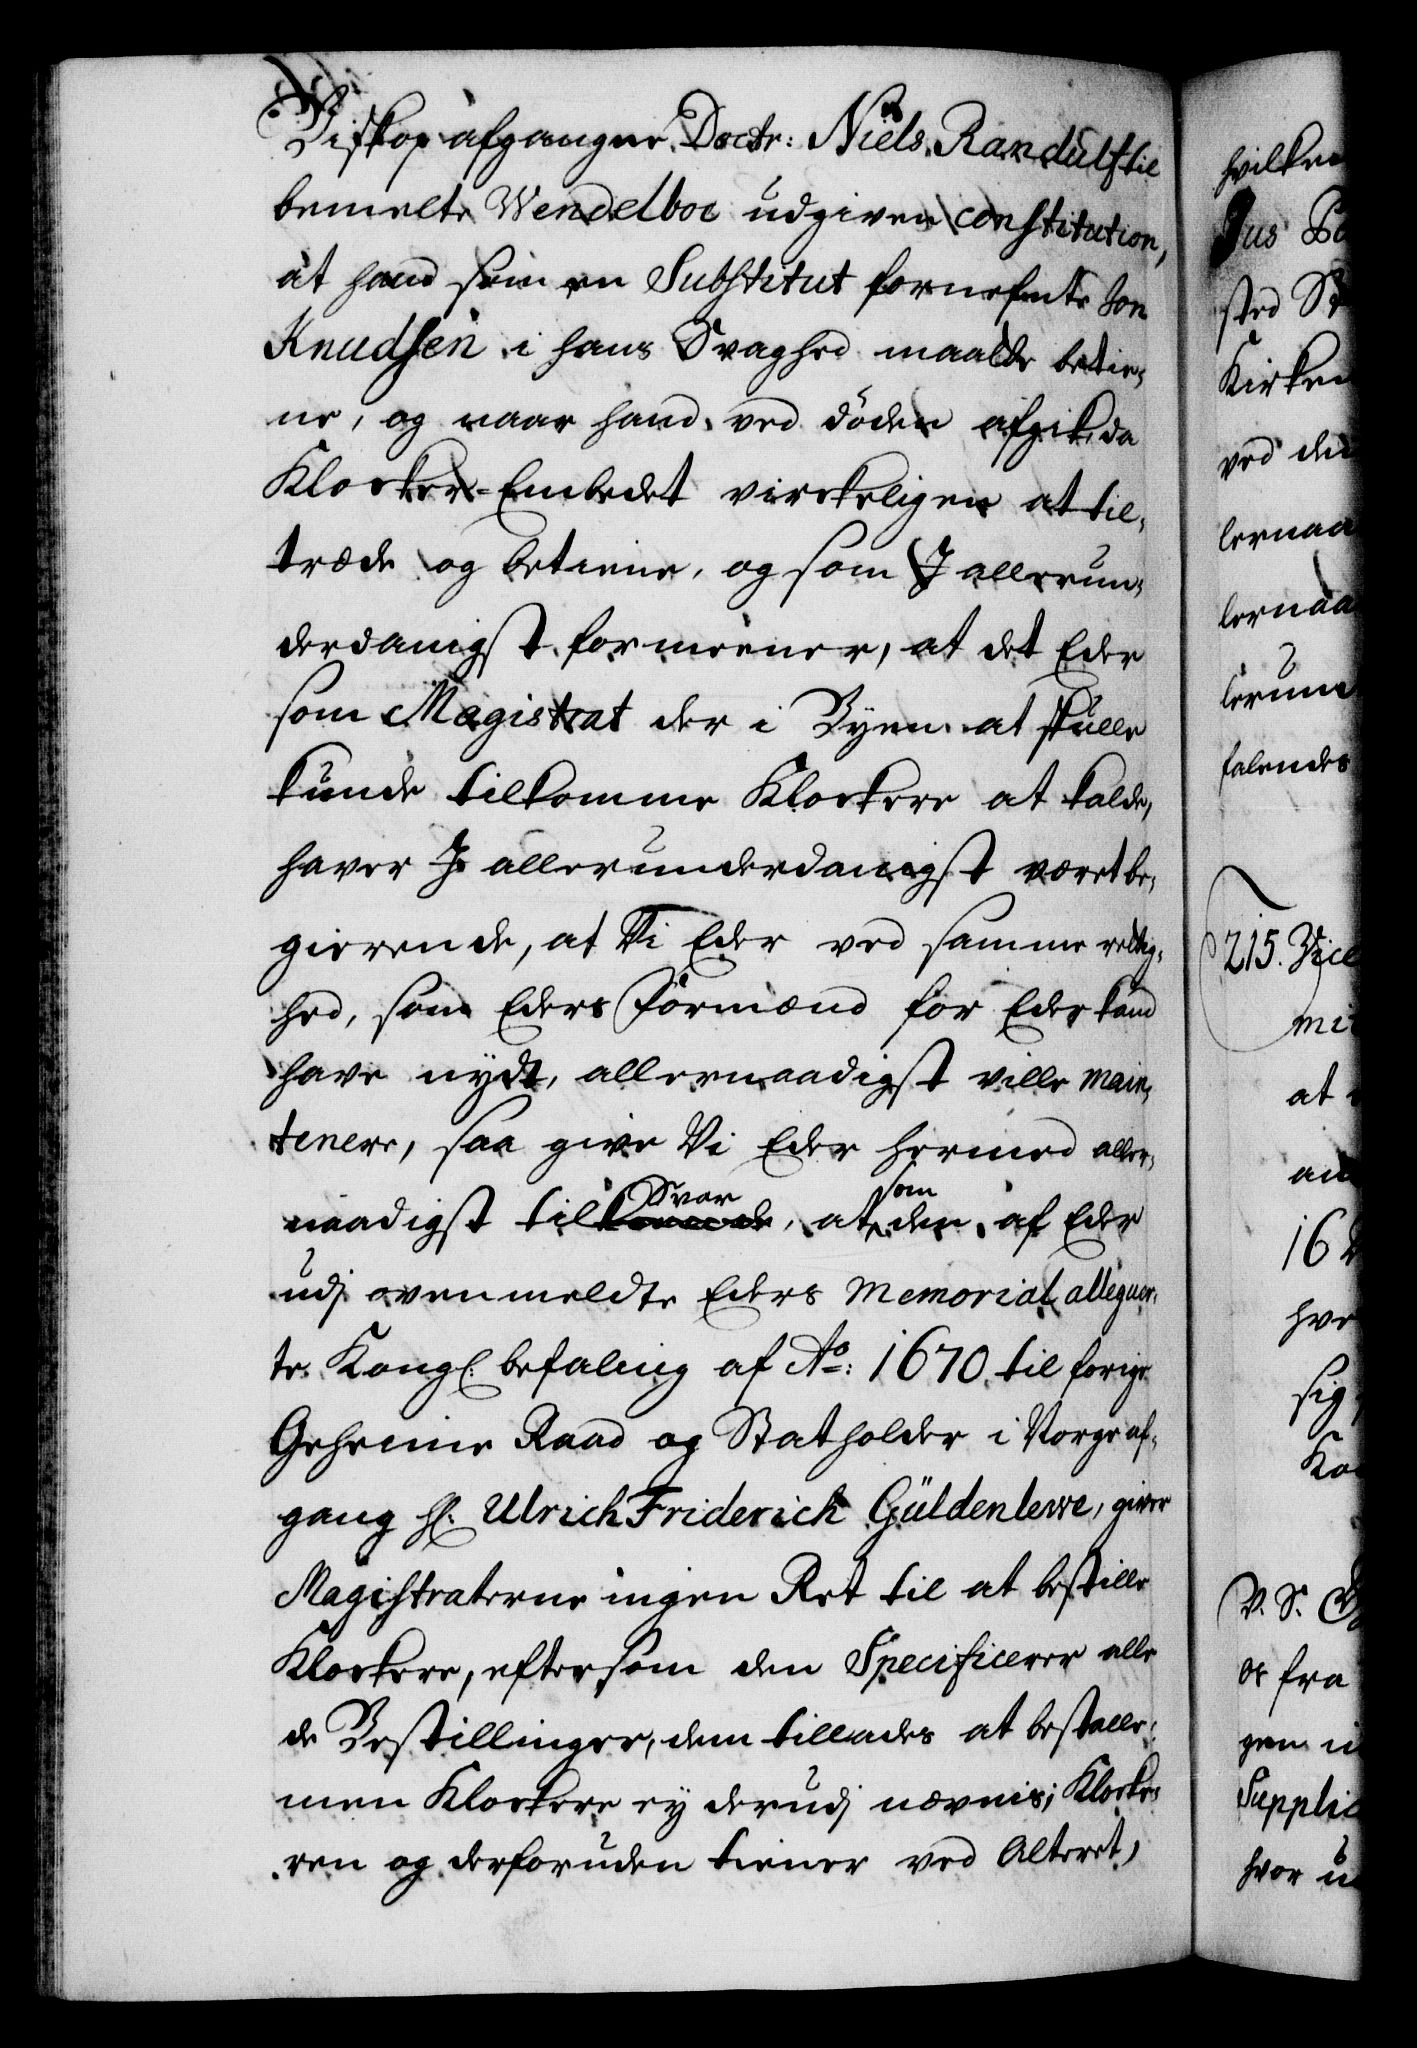 Biskop afgangne Doctr: Niels Randulf til
bemelte Wendelboe udgiven constitution,
at hand som en Substitut fornefnte Jon
Knudsen i hans Svaghed maatte betie-
ne, og naar hand ved döden afgik, da
Klocker-Embedet virckeligen at til-
træde og betiene, og som I allerun-
derdanigst formeener, at det Eder
som Magistrat der i Byen at skulle
kunde tilkomme Klockere at kalde,
haver I allerunderdanigst været be-
gierende, at Vi Eder ved samme rettig-
hed, som Eders Formænd for Eder kand
have nydt, allernaadigst ville main-
tenere, saa give Vi Eder hermed aller-
Svar som
naadigst til, at den af Eder
udj ovenmeldte Eders Memorial alleguer-
te Kongl. befaling af Ao: 1670 til forige
Geheime Raad og Statholder i Norge af-
gang Hl. Ulrich Friderich Güldenlewe, giver
Magistraterne ingen Ret til at bestille
Klockere, eftersom den Specificerer alle
de Bestillinger, dem tillades at bestalle,
men Klockere ey derudj nævnis; Klocke-
ren og derforuden tiener ved Alteret,
hvilken
Jus
sted
Kirken
ved den
lernaa
lernaa
lerun
falendes
215. Vice
mi
at
an
16
hve
sig
V. S.
os fra
gen
Supplic
hvor